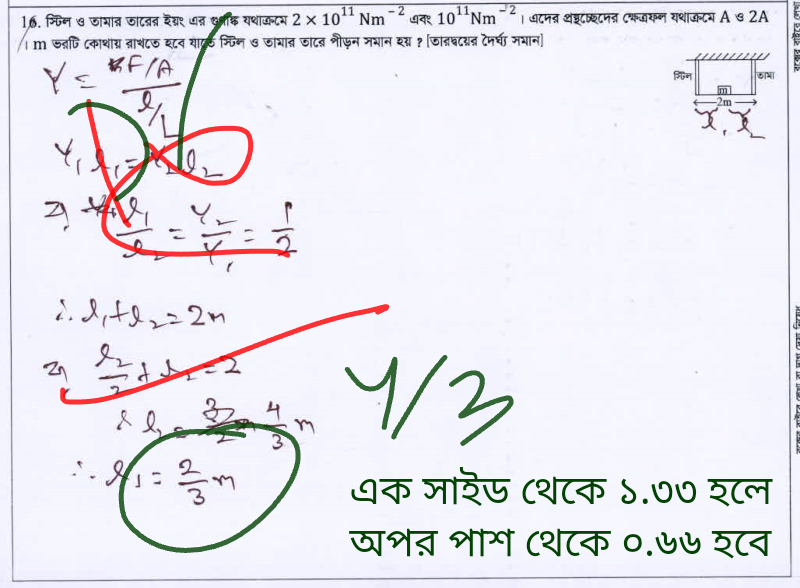 16. স্টিল ও তামার তারের ইয়ং এর গুণাঙ্ক যথাক্রমে 2 × 10¹¹ Nm⁻² এবং 10¹¹ Nm⁻² । এদের প্রস্থচ্ছেদের ক্ষেত্রফল যথাক্রমে A ও 2A
। m ভরটি কোথায় রাখতে হবে যাতে স্টিল ও তামার তারে পীড়ন সমান হয় ? [তারদ্বয়ের দৈর্ঘ্য সমান]
স্টিল
তামা
m
2m
Y = F/A / l/L
Y₁ l₁ = Y₂ l₂
l₁/l₂ = Y₂/Y₁ = 1/2
∴ l₁ + l₂ = 2m
l₂/2 + l₂ = 2
4/3 m
∴ l₁ = 2/3 m
4/3
এক সাইড থেকে ১.৩৩ হলে
অপর পাশ থেকে ০.৬৬ হবে